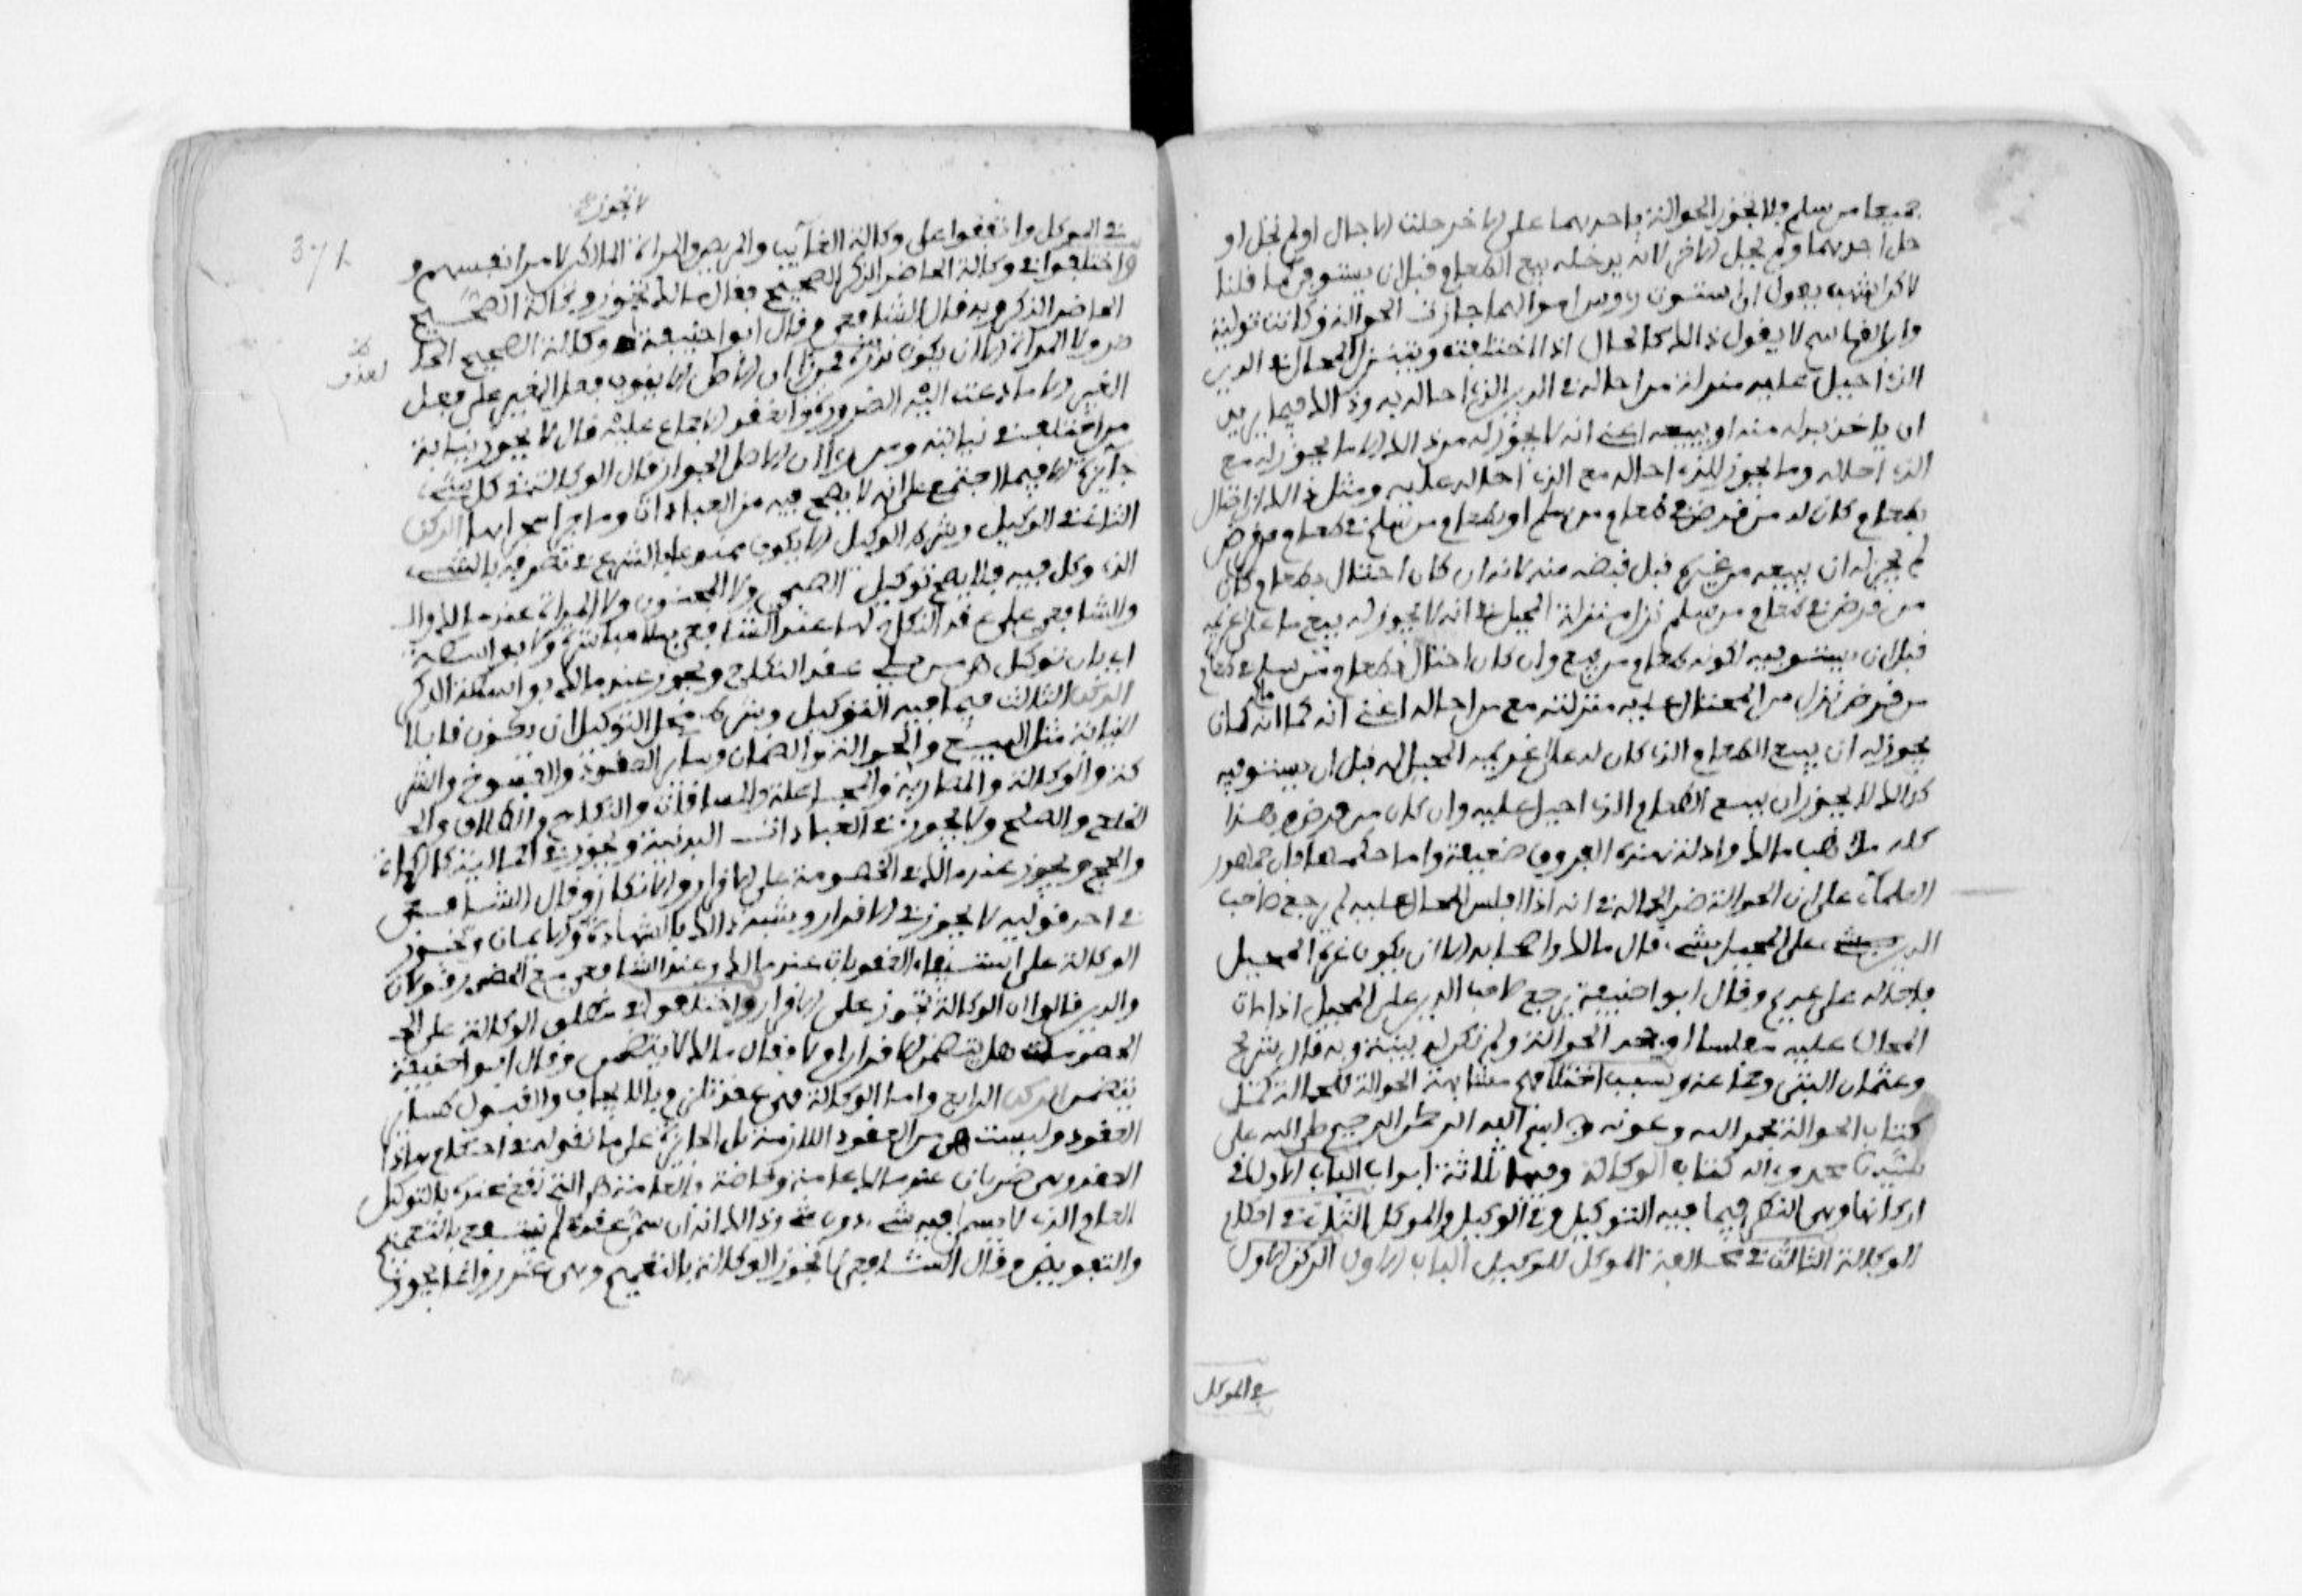 جميعا من سلم فلا تجوز الحوالة باحدهما على الاخر حلت الاجال او لم تحل او
حل احدهما ولم يحل الاخر لانه يدخله بيع الطعام قبل ان يستوفى كما قلنا
لاكن اشهب يقول ان استوت رءوس اموالهما جازت الحوالة وكانت تولية
وابن القاسم لا يقول ذالك كالحال اذا اختلفت ويتنزل المحال في الدين
الذي احيل عليه منزلة من احاله في الدين الذي احاله به وذالك فيما يريد
ان ياخذ بدله منه او يبيعه اعني انه لا يجوز له من ذالك الا ما يجوز له مع
الذي احاله وما يجوز للذي احاله مع الذي احاله عليه ومثل ذالك ان احتال
بطعام كان له من قرض في طعام من سلم او بطعام من سلم في طعام من قرض
لم يجز له ان يبيعه من غيره قبل قبضه منه لانه ان كان احتال بطعام كان
من قرض في طعام من سلم نزل منزلة المحيل في انه لا يجوز له بيع ما على غريمه
قبل ان يستوفيه لكونه طعام من بيع وان كان احتال بطعام من سلم في طعام
من قرض نزل من المحتال عليه منزلته مع من احاله اعني انه كما انه ما كان
يجوز له ان يبيع الطعام الذي كان له على غريمه المحيل له قبل ان يستوفيه
كذالك لا يجوز ان يبيع الطعام الذي احيل عليه وان كان من قرض وهذا
كله مذهب مالك وادلة هذه الفروق ضعيفة واما حكمها فان جمهور
العلماء على ان الحوالة ضد الحمالة في انه اذا افلس المحال عليه لم يرجع صاحب
الدين على المحيل بشيء قال مالك واصحابه الا ان يكون غره المحيل
فاحاله على عديم وقال ابو حنيفة يرجع صاحب الدين على المحيل اذا مات
المحال عليه مفلسا او جحد الحوالة ولم تكن له بينة وبه قال شريح
وعثمان البتي وجماعة وسبب اختلافهم مشابهة الحوالة للحمالة كمل
كتاب الحوالة بحمد الله وعونه بسم الله الرحمن الرحيم صلى الله على
سيدنا محمد وءاله كتاب الوكالة وفيها ثلاثة ابواب الباب الاول في
اركانها وهي النظر فيما فيه التوكيل وفي الوكيل والموكل الثاني في احكام
الوكالة الثالث في مخالفة الموكل للوكيل الباب الاول الركن الاول
في الموكل
371
لا تجوز
في الموكل واتفقوا على وكالة الغايب والمريض والمراة المالكين لامر انفسهم و
واختلفوا في وكالة الحاضر الذكر الصحيح فقال مالك تجوز وكالة الصحيح
الحاضر الذكر وبه قال الشافعي وقال ابو حنيفة وكالة الصحيح الحا
ضر ولا المراة الا ان تكون برزة فمن راى ان الاصل لا ينوب فعل الغير على فعل
الغير الا ما دعت اليه الضرورة وانعقد الاجماع عليه قال لا يجوز نيابة
من اختلف في نيابته ومن راى ان الاصل الجواز قال الوكالة في كل شيء
جايزة الا فيما اجتمع على انه لا يصح فيه من العبادات وما جرا مجراها الركن
الثاني في الوكيل وشرط الوكيل الا يكون ممنوعا بالشرع في تصرفه بالشيء
الذي وكل فيه فلا يصح توكيل الصبي ولا المجنون ولا المراة عند مالك وال
والشافعي على عقد النكاح اما عند الشافعي فلا مباشرة ولا بواسطة
اي بان توكل هي من يلي عقد النكاح ويجوز عند مالك بواسطة الذكر
الركن الثالث فيما فيه التوكيل وشرط محل التوكيل ان يكون قابلا
للنيابة مثل البيع والحوالة والضمان وساير العقود والفسوخ والشر
كة والوكالة والمضاربة والجعالة والمساقات والنكاح والطلاق وال
الخلع والصلح ولا تجوز في العبادات البدنية وتجوز في المالية كالزكاة
والحج وتجوز عند مالك في الخصومة على الاقرار والانكار وقال الشافعي
في احد قوليه لا تجوز في الاقرار وشبه ذالك بالشهادة والايمان وتجوز
الوكالة على استيفاء العقوبات عند مالك وعند الشافعي مع الحضور قولان
والذين قالوا ان الوكالة تجوز على الاقرار واختلفوا في مطلق الوكالة على ال
الخصومة هل يتضمن الاقرار ام لا فقال مالك لا يتضمن وقال ابو حنيفة
يتضمن الركن الرابع واما الوكالة فهي عقد تلزم بالايجاب والقبول كساير
العقود وليست هي من العقود اللازمة بل الجايزة على ما نقوله في احكام هذا
العقد وهي ضربان عند مالك عامة وخاصة والعامة هي التي تقع عنده بالتوكيل
العام الذي لا يسمى فيه شيء دون شيء وذالك انه ان سمى عنده لم ينتفع بالتعميم
والتفويض وقال الشافعي لا تجوز الوكالة بالتعميم وهي غرر وانما يجوز